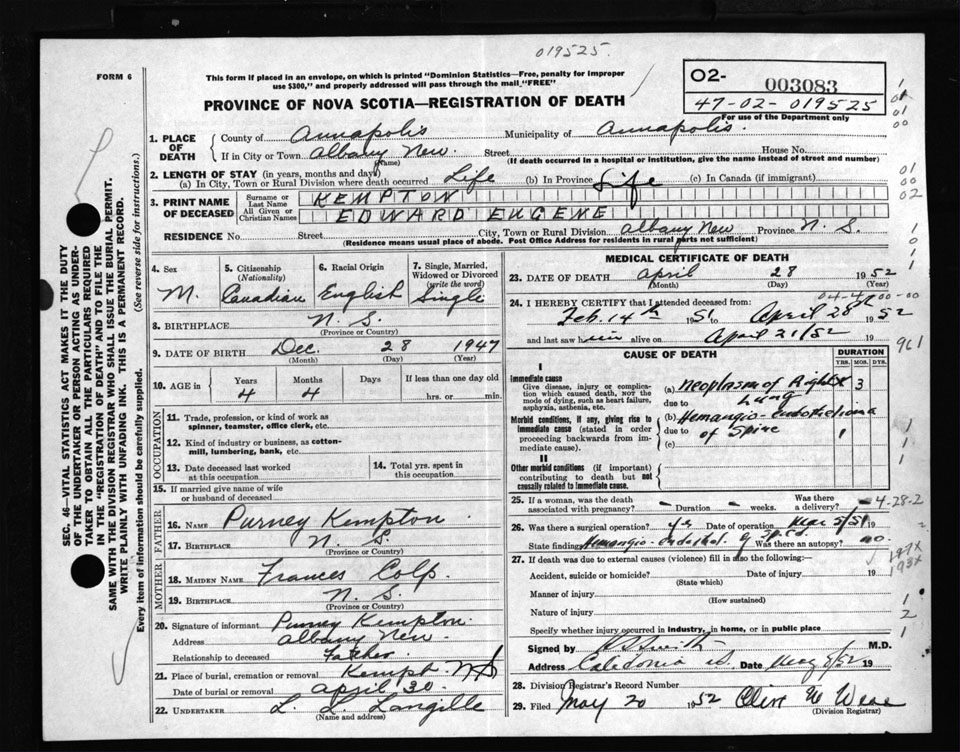 019525.
FORM 6
This form if placed in an envelope, on which is printed "Dominion Statistics—Free, penalty for improper
use $300," and properly addressed will pass through the mail "FREE"
O2- 003083
47-02-019525
For use of the Department only
PROVINCE OF NOVA SCOTIA—REGISTRATION OF DEATH
1. PLACE OF DEATH
County of Annapolis Municipality of Annapolis.
If in City or Town Albany New. Street House No.
(Name) (If death occurred in a hospital or institution, give the name instead of street and number)
2. LENGTH OF STAY (in years, months and days)
(a) In City, Town or Rural Division where death occurred Life (b) In Province Life (c) In Canada (if immigrant)
3. PRINT NAME OF DECEASED
Surname or Last Name KEMPTON
All Given or Christian Names EDWARD EUGENE
RESIDENCE No. Street City, Town or Rural Division Albany New Province N. S.
(Residence means usual place of abode. Post Office Address for residents in rural parts not sufficient)
4. Sex 5. Citizenship (Nationality) 6. Racial Origin 7. Single, Married, Widowed or Divorced (write the word)
M. Canadian English Single
8. BIRTHPLACE N. S.
(Province or Country)
9. DATE OF BIRTH Dec. 28 1947
(Month) (Day) (Year)
10. AGE in Years Months Days If less than one day old
4 4 hrs. or min.
OCCUPATION
11. Trade, profession, or kind of work as
spinner, teamster, office clerk, etc.
12. Kind of industry or business, as cotton-
mill, lumbering, bank, etc.
13. Date deceased last worked
at this occupation
14. Total yrs. spent in
this occupation
15. If married give name of wife
or husband of deceased
FATHER
16. NAME Purney Kempton.
17. BIRTHPLACE N. S.
(Province or Country)
MOTHER
18. MAIDEN NAME Frances Colp.
19. BIRTHPLACE N. S.
(Province or Country)
20. Signature of informant Purney Kempton.
Address Albany New.
Relationship to deceased Father.
21. Place of burial, cremation or removal Kempt NS
Date of burial or removal April 30
22. UNDERTAKER L. L. Langille
(Name and address)
MEDICAL CERTIFICATE OF DEATH
23. DATE OF DEATH April 28 1952
(Month) (Day) (Year)
24. I HEREBY CERTIFY that I attended deceased from:
Feb. 14th 1951 to April 28th 1952
and last saw him alive on April 21/52
CAUSE OF DEATH
DURATION
YRS. MOS. DYS.
I
Immediate cause
Give disease, injury or complica-
tion which caused death, not the
mode of dying, such as heart failure,
asphyxia, asthenia, etc.
(a) Neoplasm of Right 3
due to Lung
Morbid conditions, if any, giving rise to
immediate cause (stated in order
proceeding backwards from im-
mediate cause).
(b) Hemangio-endothelioma
due to of Spine 1
(c)
II
Other morbid conditions (if important)
contributing to death but not
causally related to immediate cause.
25. If a woman, was the death
associated with pregnancy? - Duration - weeks. Was there
a delivery? -
4-28-2
26. Was there a surgical operation? yes Date of operation Mar 5/51 19
State findings Hemangio-endothel. of Sp. Cd. Was there an autopsy? no.
27. If death was due to external causes (violence) fill in also the following:—
Accident, suicide or homicide? Date of injury 19
(State which)
Manner of injury
(How sustained)
Nature of injury
Specify whether injury occurred in industry, in home, or in public place
Signed by M.D.
Address Caledonia Date May 8/52 19
28. Division Registrar's Record Number
29. Filed May 20 1952 Olive W
(Division Registrar)
SEC. 46—VITAL STATISTICS ACT MAKES IT THE DUTY
OF THE UNDERTAKER OR PERSON ACTING AS UNDER-
TAKER TO OBTAIN ALL THE PARTICULARS REQUIRED
IN THE "REGISTRATION OF DEATH" AND TO FILE THE
SAME WITH THE DIVISION REGISTRAR WHO SHALL ISSUE THE BURIAL PERMIT.
WRITE PLAINLY WITH UNFADING INK. THIS IS A PERMANENT RECORD.
Every item of information should be carefully supplied. (See reverse side for instructions.)